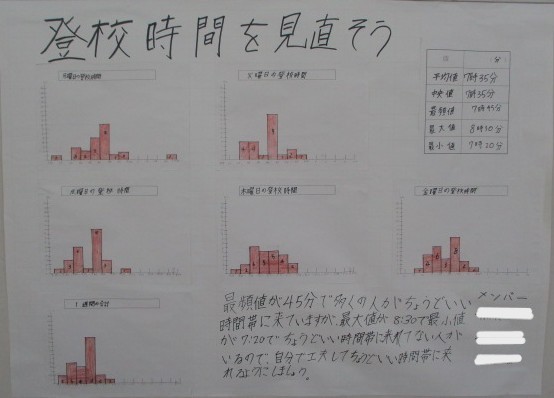 登校時間を見直そう
月曜日の登校時間
火曜日の登校時間
(分)
平均値 7時35分
中央値 7時35分
最頻値 7時45分
最大値 8時30分
最小値 7時20分
水曜日の登校時間
木曜日の登校時間
金曜日の登校時間
1週間の合計
最頻値が45分で多くの人がちょうどいい
時間帯に来ていますが、最大値が8:30で最小値
が7:20でちょうどいい時間帯に来れてない人が
いるので、自分で工夫してちょうどいい時間帯に来
れるようにしましょう。
メンバー